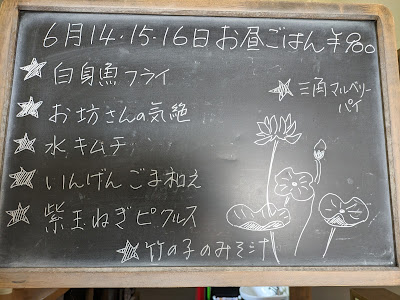 6月14・15・16日 お昼ごはん ¥900
★白身魚フライ
★三角マルベリーパイ
★お坊さんの気絶
★水キムチ
★いんげんごま和え
★紫玉ねぎピクルス
★竹の子のみそ汁